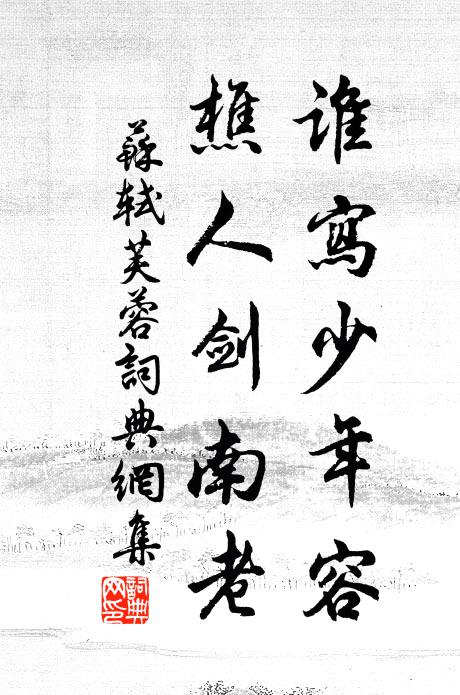 誰寫少年容
樵人劍南老
蘇軾芙蓉詞典網集
詞典网印